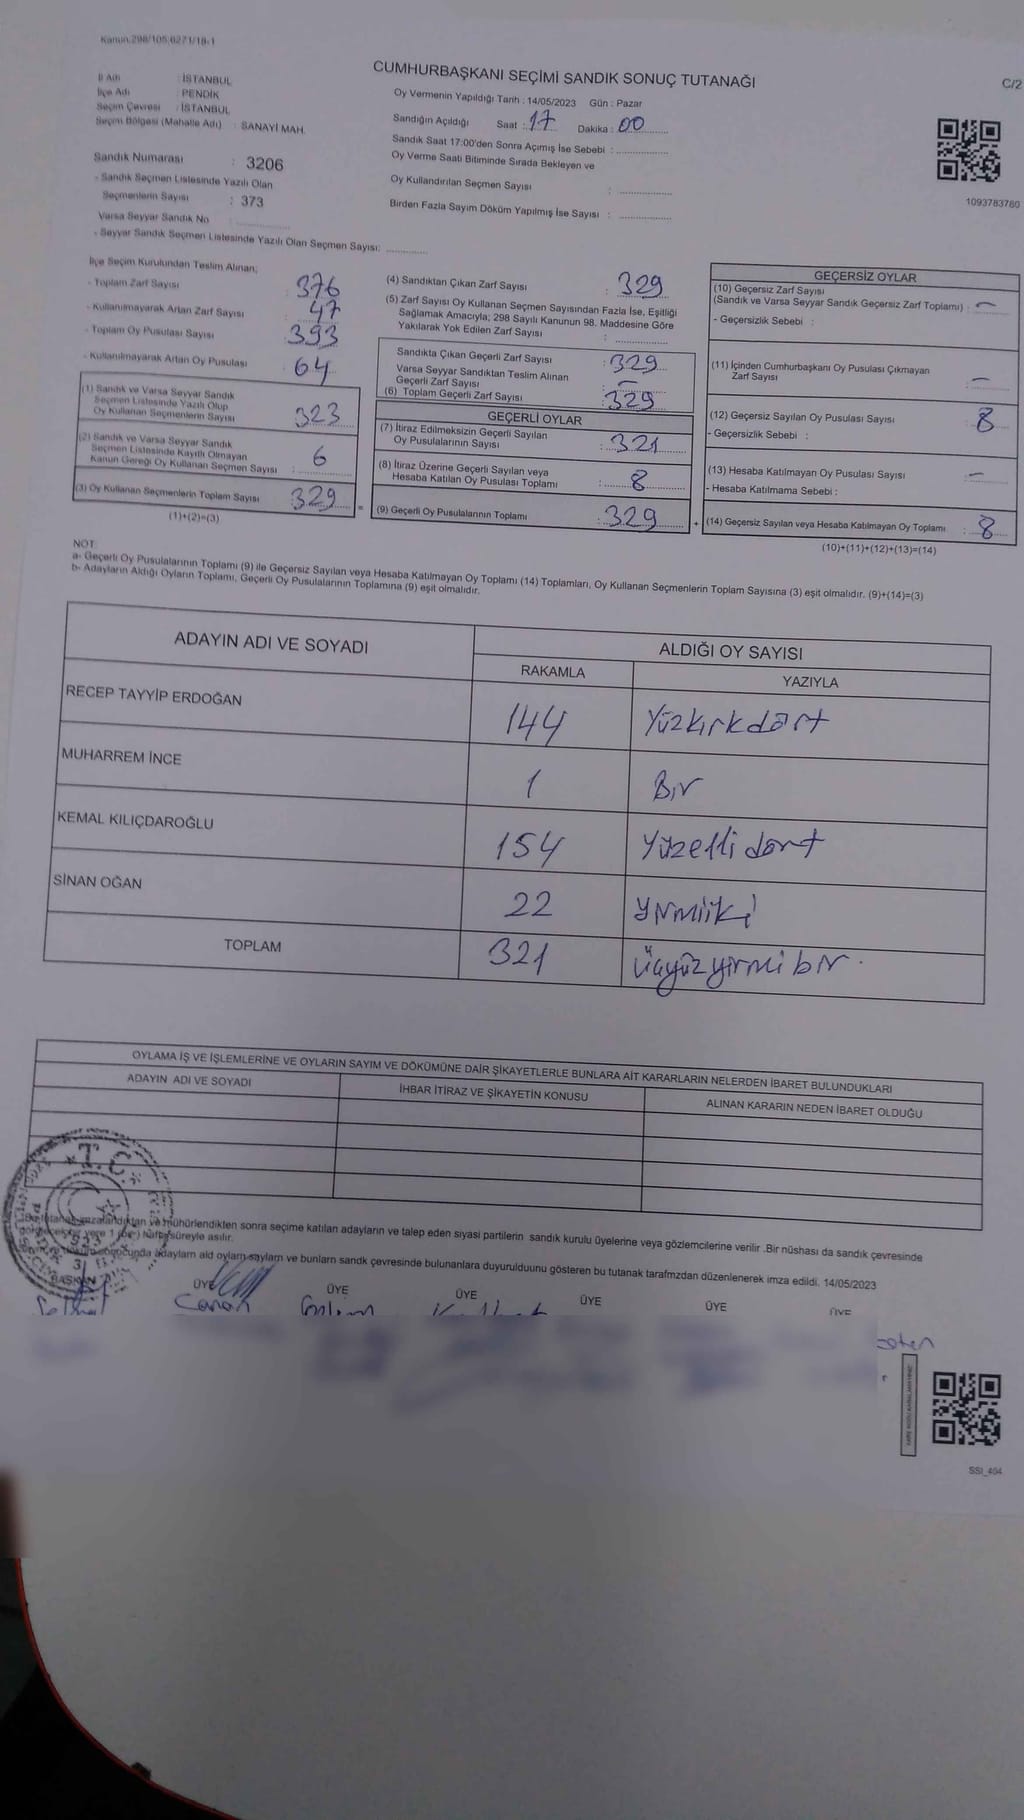 Kanun:298/105;6271/18-1
CUMHURBAŞKANI SEÇİMİ SANDIK SONUÇ TUTANAĞI
C/2
İl Adı : İSTANBUL
İlçe Adı : PENDİK
Seçim Çevresi : İSTANBUL
Seçim Bölgesi (Mahalle Adı) : SANAYİ MAH.
Oy Vermenin Yapıldığı Tarih : 14/05/2023 Gün : Pazar
Sandığın Açıldığı Saat : 17 Dakika : 00
Sandık Saat 17:00'den Sonra Açımış İse Sebebi :
Oy Verme Saati Bitiminde Sırada Bekleyen ve
Oy Kullandırılan Seçmen Sayısı :
Birden Fazla Sayım Döküm Yapılmış İse Sayısı :
1093783780
Sandık Numarası : 3206
- Sandık Seçmen Listesinde Yazılı Olan
Seçmenlerin Sayısı : 373
Varsa Seyyar Sandık No :
- Seyyar Sandık Seçmen Listesinde Yazılı Olan Seçmen Sayısı:
İlçe Seçim Kurulundan Teslim Alınan;
- Toplam Zarf Sayısı : 376
- Kullanılmayarak Artan Zarf Sayısı : 47
- Toplam Oy Pusulası Sayısı : 393
- Kullanılmayarak Artan Oy Pusulası : 64
(1) Sandık ve Varsa Seyyar Sandık
Seçmen Listesinde Yazılı Olup
Oy Kullanan Seçmenlerin Sayısı : 323
(2) Sandık ve Varsa Seyyar Sandık
Seçmen Listesinde Kayıtlı Olmayan
Kanun Gereği Oy Kullanan Seçmen Sayısı : 6
(3) Oy Kullanan Seçmenlerin Toplam Sayısı : 329
(1)+(2)=(3)
=
(4) Sandıktan Çıkan Zarf Sayısı : 329
(5) Zarf Sayısı Oy Kullanan Seçmen Sayısından Fazla İse, Eşitliği
Sağlamak Amacıyla; 298 Sayılı Kanunun 98. Maddesine Göre
Yakılarak Yok Edilen Zarf Sayısı :
Sandıkta Çıkan Geçerli Zarf Sayısı : 329
Varsa Seyyar Sandıktan Teslim Alınan
Geçerli Zarf Sayısı : –
(6) Toplam Geçerli Zarf Sayısı : 329
GEÇERLİ OYLAR
(7) İtiraz Edilmeksizin Geçerli Sayılan
Oy Pusulalarının Sayısı : 321
(8) İtiraz Üzerine Geçerli Sayılan veya
Hesaba Katılan Oy Pusulası Toplamı : 8
(9) Geçerli Oy Pusulalarının Toplamı : 329
+
GEÇERSİZ OYLAR
(10) Geçersiz Zarf Sayısı
(Sandık ve Varsa Seyyar Sandık Geçersiz Zarf Toplamı) : –
- Geçersizlik Sebebi :
(11) İçinden Cumhurbaşkanı Oy Pusulası Çıkmayan
Zarf Sayısı : –
(12) Geçersiz Sayılan Oy Pusulası Sayısı : 8
- Geçersizlik Sebebi :
(13) Hesaba Katılmayan Oy Pusulası Sayısı : –
- Hesaba Katılmama Sebebi :
(14) Geçersiz Sayılan veya Hesaba Katılmayan Oy Toplamı : 8
(10)+(11)+(12)+(13)=(14)
NOT:
a- Geçerli Oy Pusulalarının Toplamı (9) ile Geçersiz Sayılan veya Hesaba Katılmayan Oy Toplamı (14) Toplamları, Oy Kullanan Seçmenlerin Toplam Sayısına (3) eşit olmalıdır. (9)+(14)=(3)
b- Adayların Aldığı Oyların Toplamı, Geçerli Oy Pusulalarının Toplamına (9) eşit olmalıdır.
ADAYIN ADI VE SOYADI
ALDIĞI OY SAYISI
RAKAMLA YAZIYLA
RECEP TAYYİP ERDOĞAN 144 Yüzkırkdört
MUHARREM İNCE 1 Bir
KEMAL KILIÇDAROĞLU 154 Yüzelli dört
SİNAN OĞAN 22 yirmiiki
TOPLAM 321 üçyüz yirmi bir.
OYLAMA İŞ VE İŞLEMLERİNE VE OYLARIN SAYIM VE DÖKÜMÜNE DAİR ŞİKAYETLERLE BUNLARA AİT KARARLARIN NELERDEN İBARET BULUNDUKLARI
ADAYIN ADI VE SOYADI İHBAR İTİRAZ VE ŞİKAYETİN KONUSU ALINAN KARARIN NEDEN İBARET OLDUĞU
T.C.
ve mühürlendikten sonra seçime katılan adayların ve talep eden siyasi partilerin sandık kurulu üyelerine veya gözlemcilerine verilir .Bir nüshası da sandık çevresinde
süreyle asılır.
adaylarn ald oylarn saylarn ve bunlarn sandk çevresinde bulunanlara duyurulduunu gösteren bu tutanak tarafmzdan düzenlenerek imza edildi. 14/05/2023
BAŞKAN ÜYE ÜYE ÜYE ÜYE ÜYE ÜYE
Canan
SSI_404